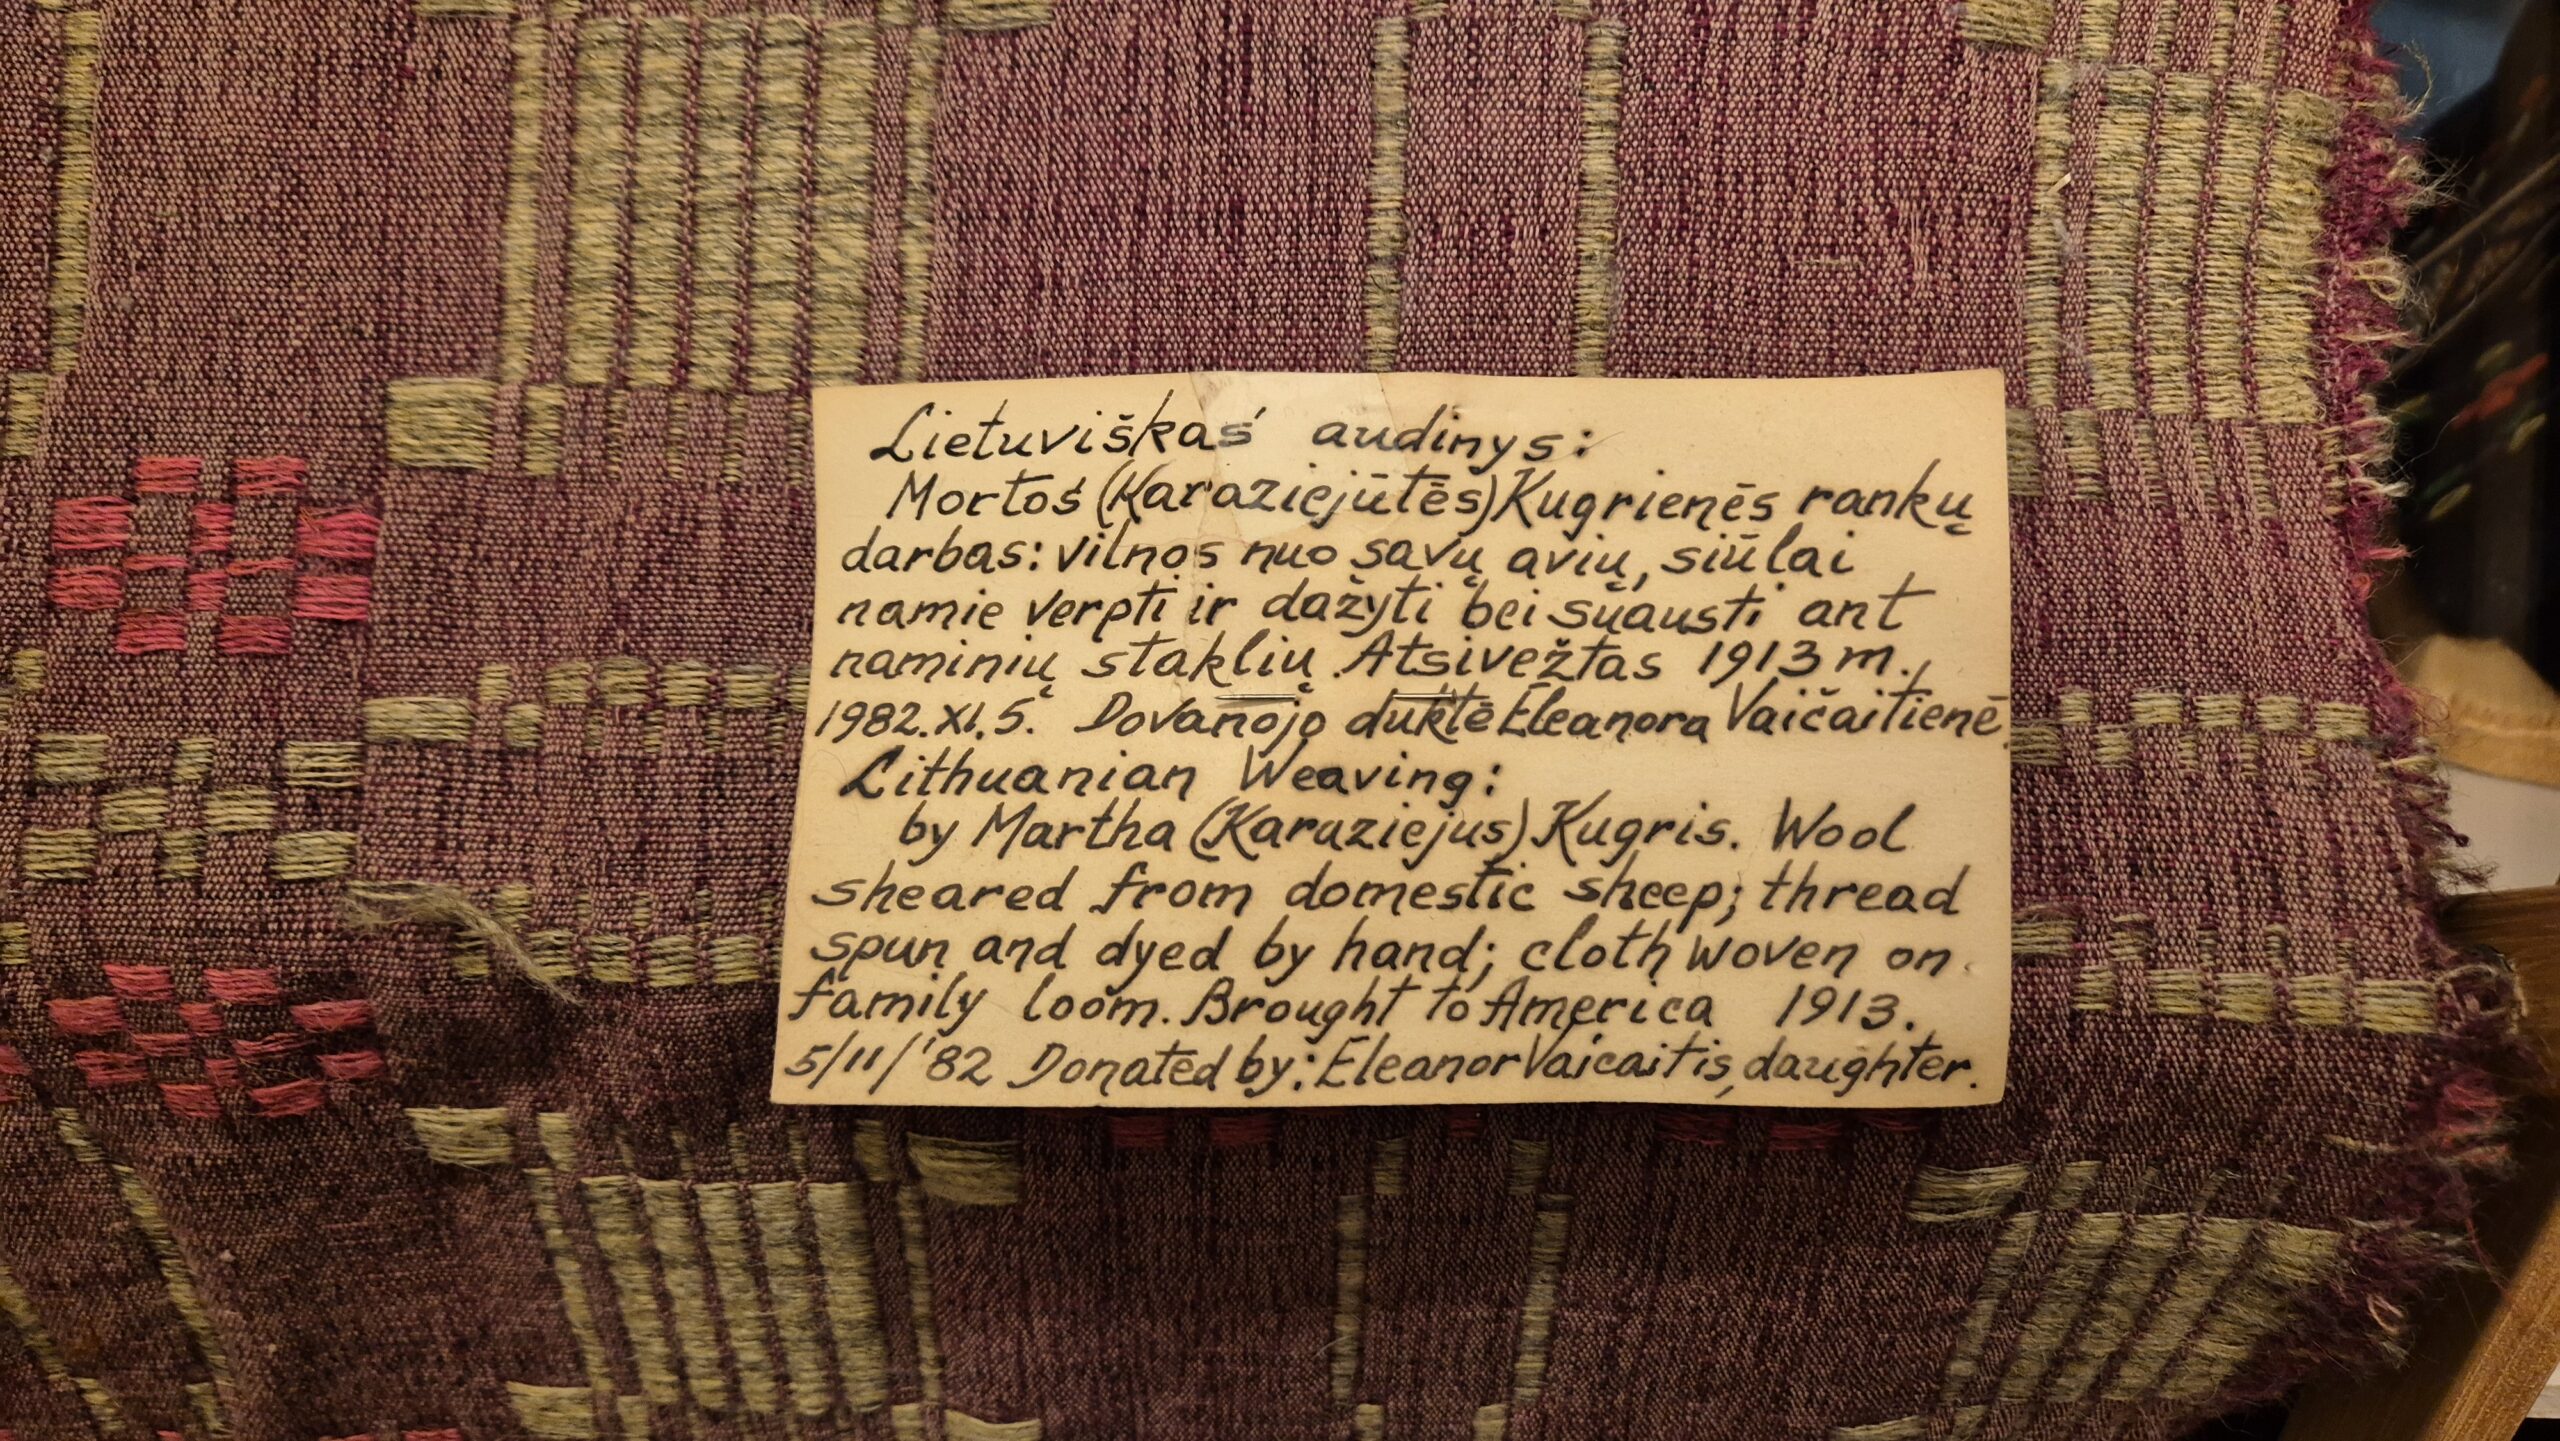 Lietuviškas audinys:
Mortos (Karaziejūtės) Kugrienės rankų
darbas: vilnos nuo savų avių, siūlai
namie verpti ir dažyti bei suausti ant
naminių staklių. Atsivežtas 1913 m.,
1982.XI.5. Dovanojo duktė Eleanora Vaičaitienė.
Lithuanian Weaving:
by Martha (Karaziejus) Kugris. Wool
sheared from domestic sheep; thread
spun and dyed by hand; cloth woven on
family loom. Brought to America 1913.
5/11/'82 Donated by: Eleanor Vaicaitis, daughter.